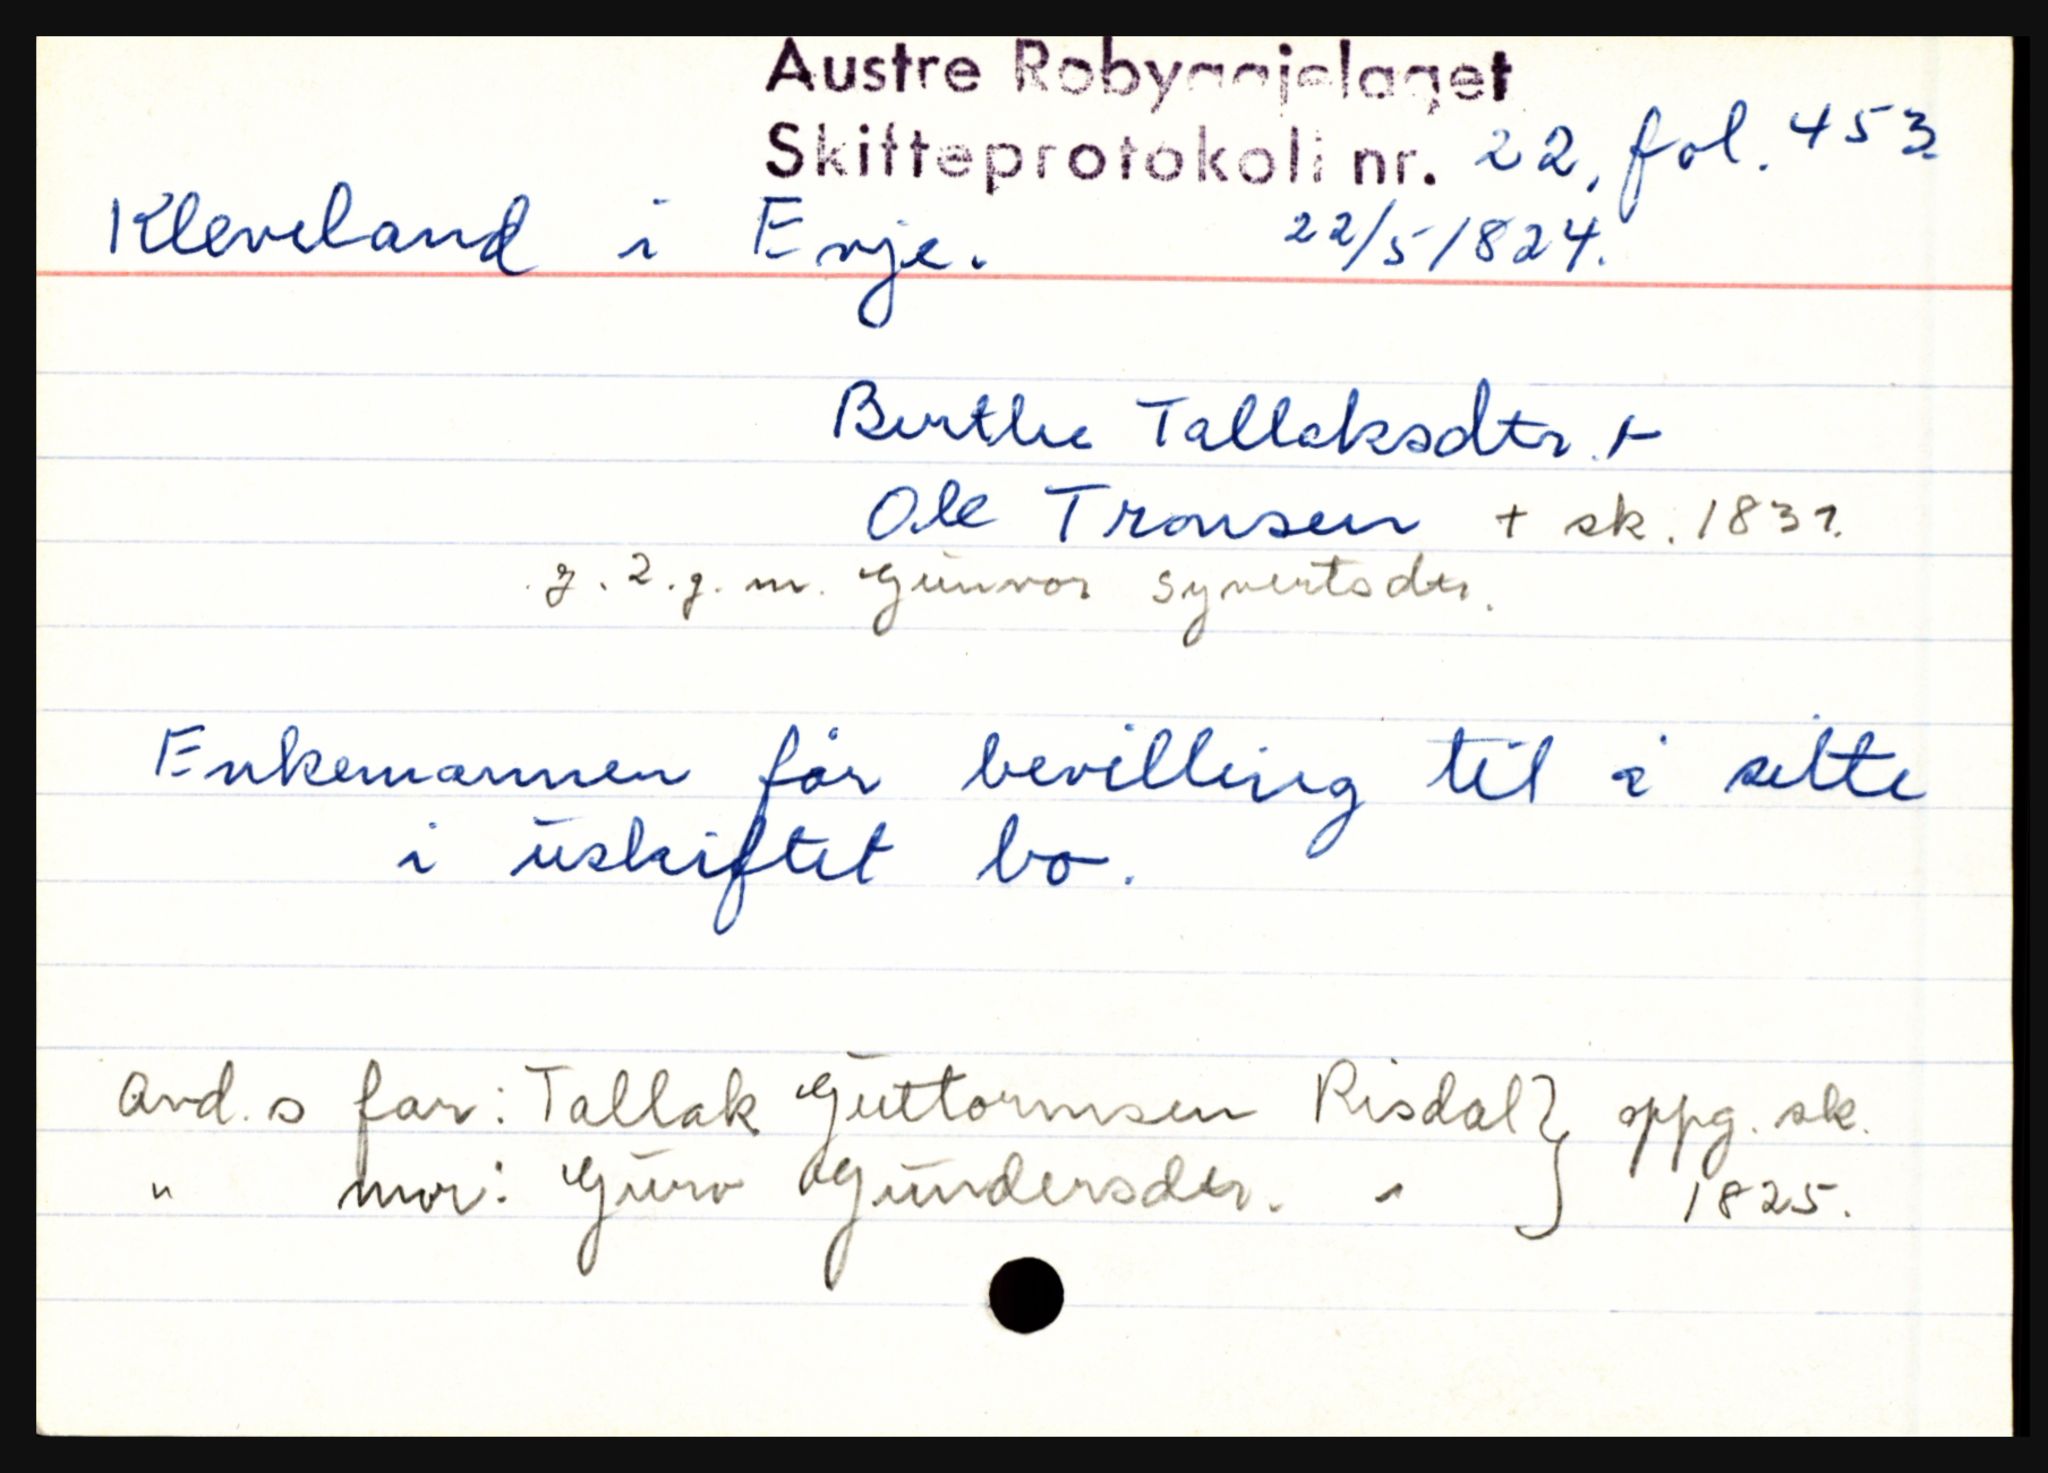 Austre Robyggjelaget
Skifteprotokoll nr. 22, fol. 453.
Kleveland i Evje. 22/5 1824.
Berthe Tallaksdtr. +
Ole Tronsen + sk. 1831.
g. 2. g. m. Gunvor Syvertsdtr.
Enkemannen får bevilling til å sitte
i uskiftet bo.
Avd. s far: Tallak Guttormsen Risdal } oppg. sk.
" mor: Guro Gundersdtr. " } 1825.